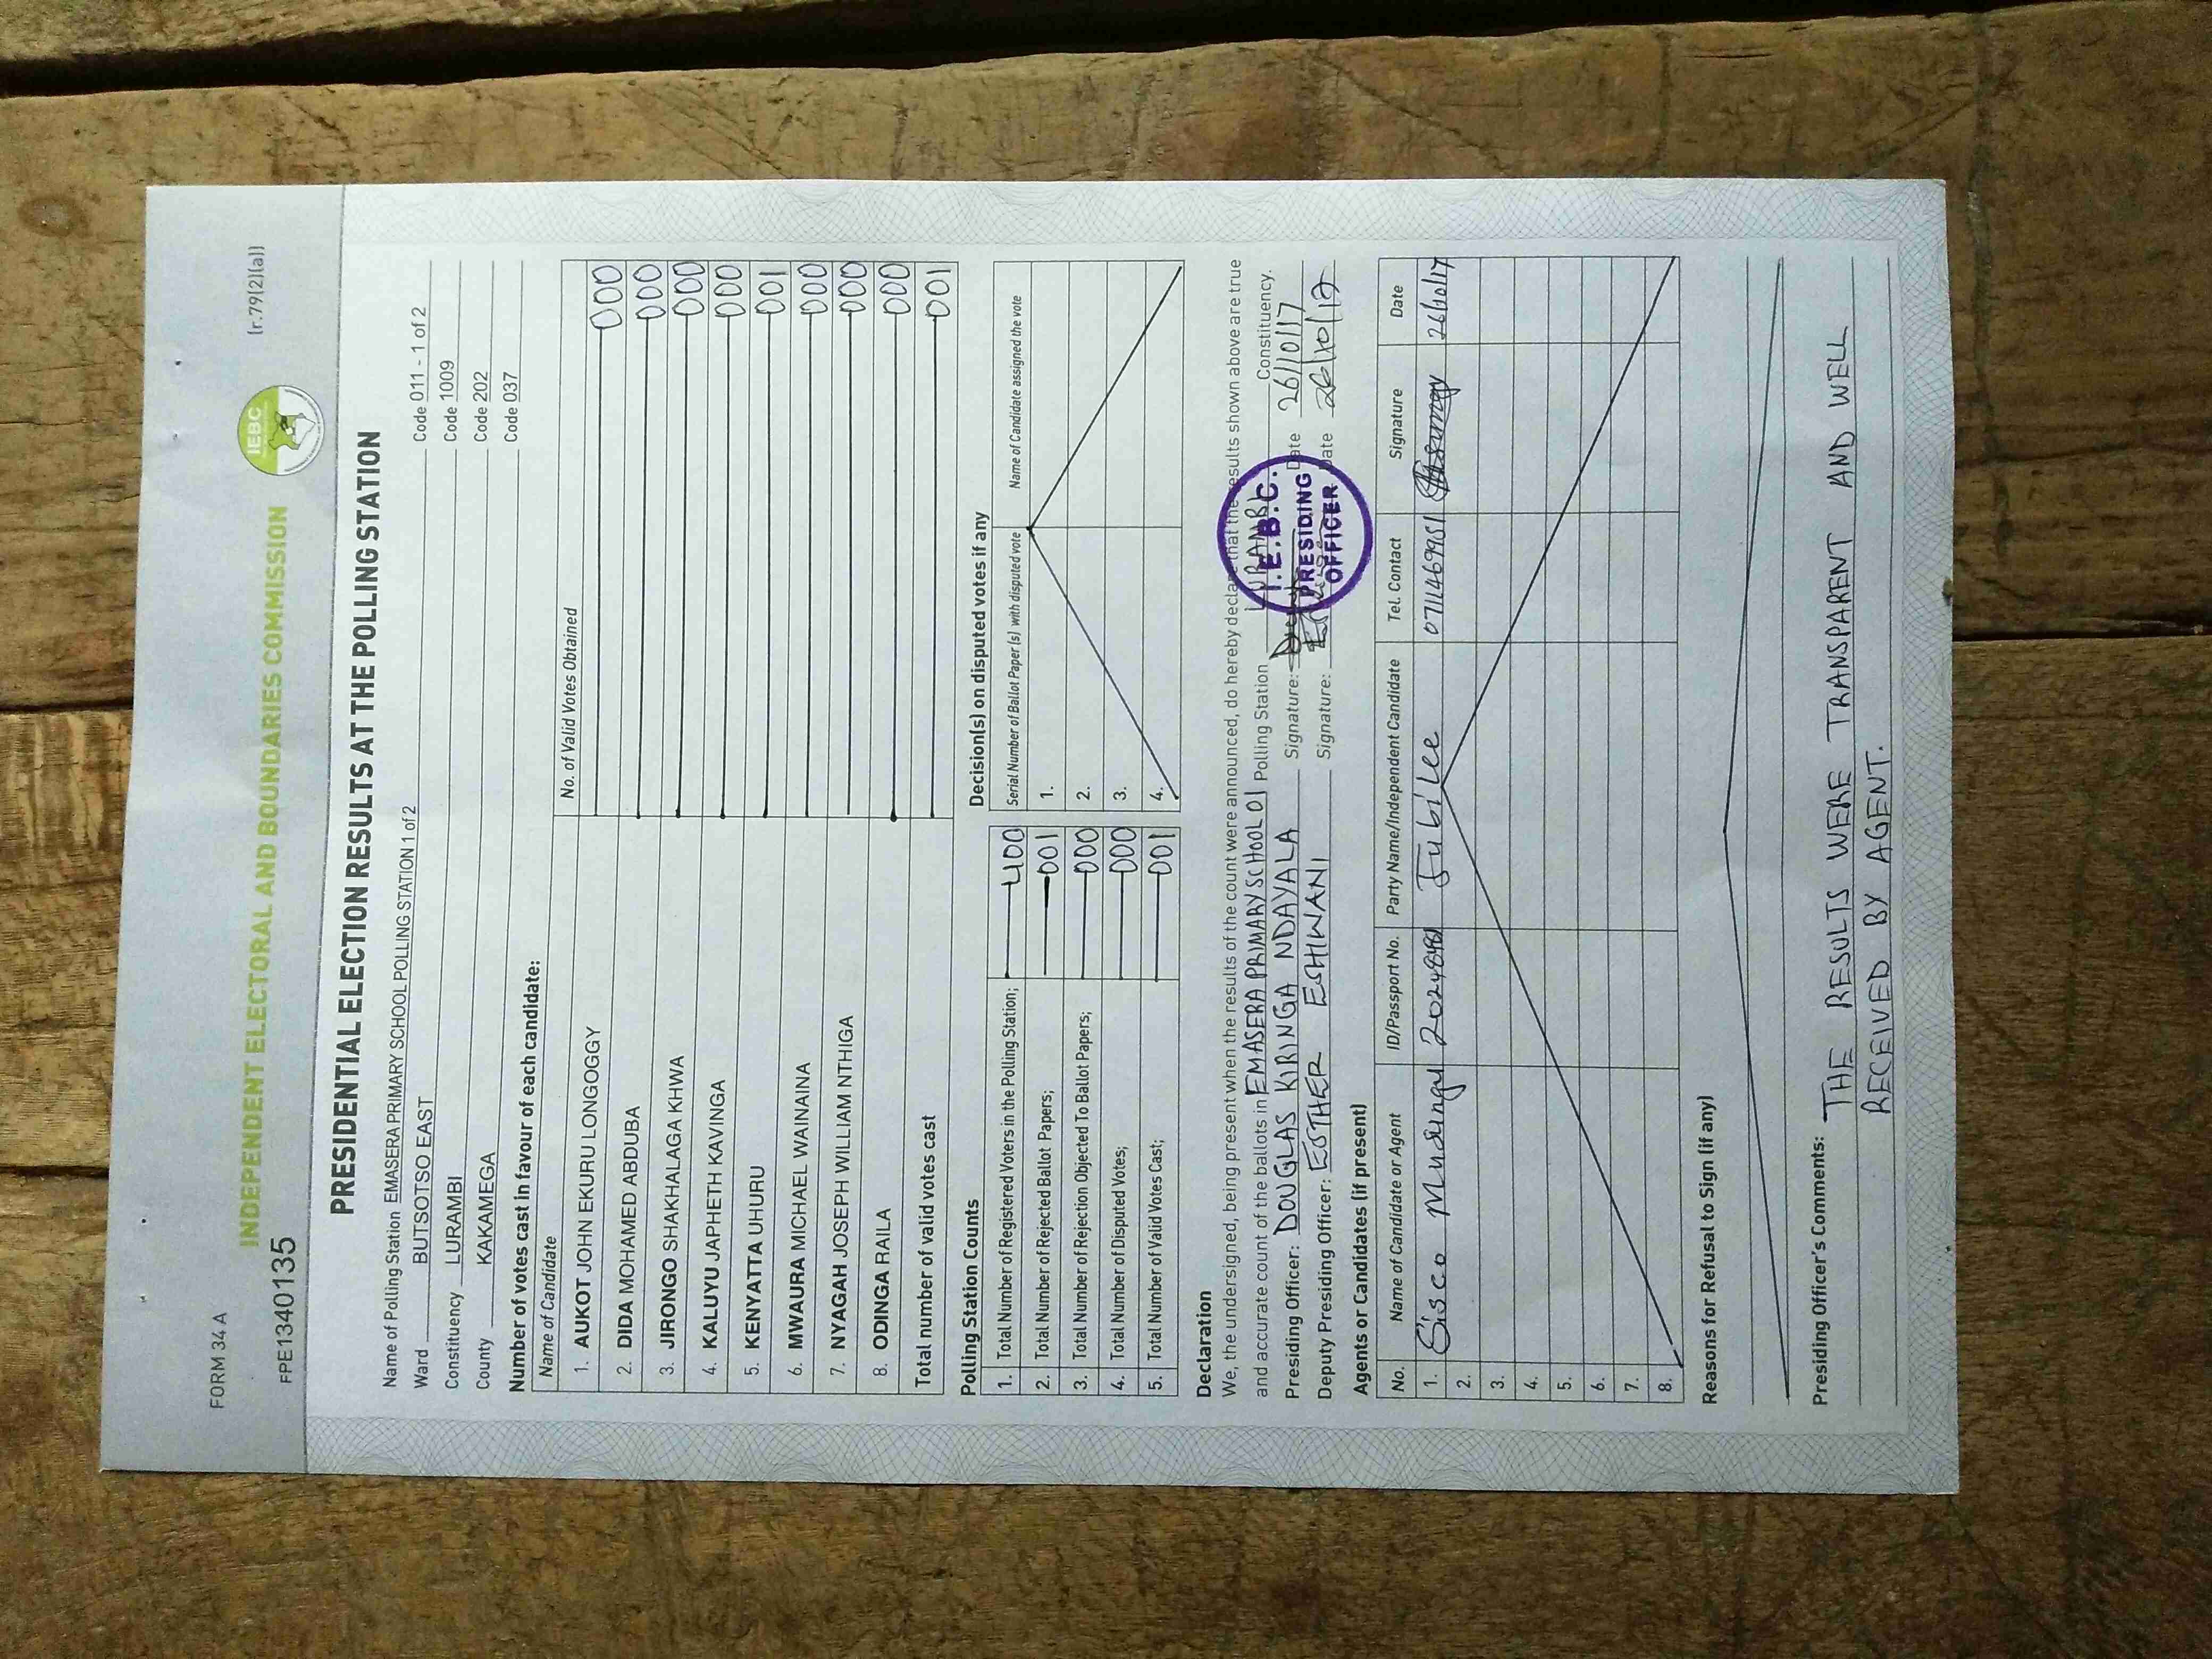 FORM 34 A
(r.79(2)(a))
IEBC
INDEPENDENT ELECTORAL AND BOUNDARIES COMMISSION
FPE1340135
PRESIDENTIAL ELECTION RESULTS AT THE POLLING STATION
Name of Polling Station EMASERA PRIMARY SCHOOL POLLING STATION 1 of 2 Code 011 - 1 of 2
Ward BUTSOTSO EAST Code 1009
Constituency LURAMBI Code 202
County KAKAMEGA Code 037
Number of votes cast in favour of each candidate:
Name of Candidate No. of Valid Votes Obtained
1. AUKOT JOHN EKURU LONGOGGY 000
2. DIDA MOHAMED ABDUBA 000
3. JIRONGO SHAKHALAGA KHWA 000
4. KALUYU JAPHETH KAVINGA 000
5. KENYATTA UHURU 001
6. MWAURA MICHAEL WAINAINA 000
7. NYAGAH JOSEPH WILLIAM NTHIGA 000
8. ODINGA RAILA 000
Total number of valid votes cast 001
Polling Station Counts
1. Total Number of Registered Voters in the Polling Station; 400
2. Total Number of Rejected Ballot Papers; 001
3. Total Number of Rejection Objected To Ballot Papers; 000
4. Total Number of Disputed Votes; 000
5. Total Number of Valid Votes Cast; 001
Decision(s) on disputed votes if any
Serial Number of Ballot Paper (s) with disputed vote Name of Candidate assigned the vote
1.
2.
3.
4.
Declaration
We, the undersigned, being present when the results of the count were announced, do hereby declare that the results shown above are true
and accurate count of the ballots in EMASERA PRIMARY SCHOOL 01 Polling Station LURAMBI Constituency.
Presiding Officer: DOUGLAS KIRINGA NDAYALA Signature: Date 26/10/17
Deputy Presiding Officer: ESTHER ESHIWANI Signature: Date 26/10/17
I.E.B.C.
PRESIDING
OFFICER
Agents or Candidates (if present)
No. Name of Candidate or Agent ID/Passport No. Party Name/Independent Candidate Tel. Contact Signature Date
1. Sisco Musungu Jubilee 0711469951 26/10/17
2.
3.
4.
5.
6.
7.
8.
Reasons for Refusal to Sign (if any)
Presiding Officer's Comments: THE RESULTS WERE TRANSPARENT AND WELL
RECEIVED BY AGENT.